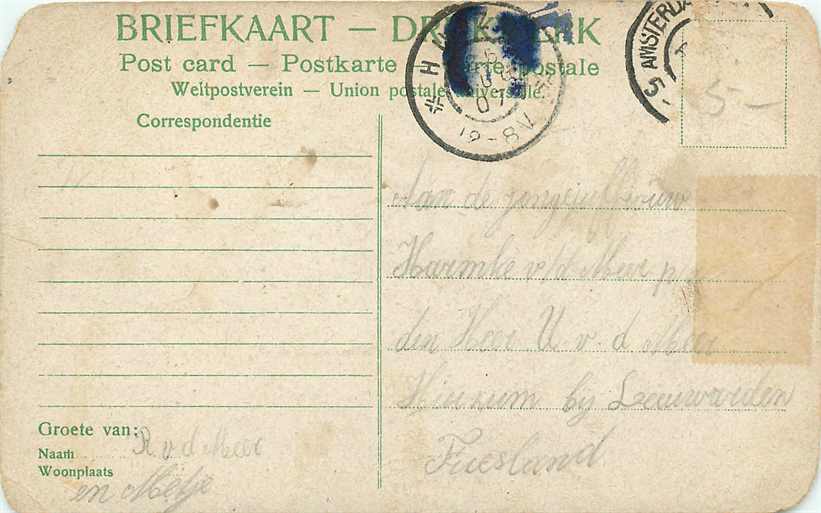 BRIEFKAART —
Post card — Postkarte postale
Weltpostverein — Union postale universelle.
Correspondentie
AMSTERDA
12-8V
07
5
5-
Aan de jongejuffrouw
Harmke v/d Meer p/a
den Heer U. v. d Meer
Hinsum bij Leeuwarden
Friesland
Groete van:
Naam R. v. d Meer
Woonplaats
en Metje